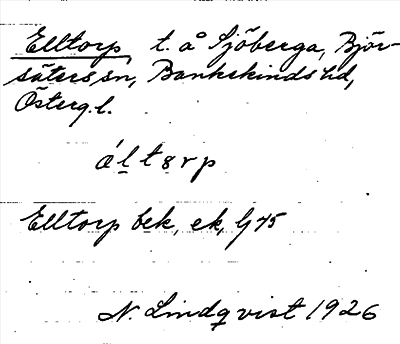 Elltorp, t. å Sjöberga, Björ-
säters sn, Bankekinds hd,
Österg. l.
ál̥tɵrp
Elltorp bek, ek, Gj 75
N. Lindqvist 1926